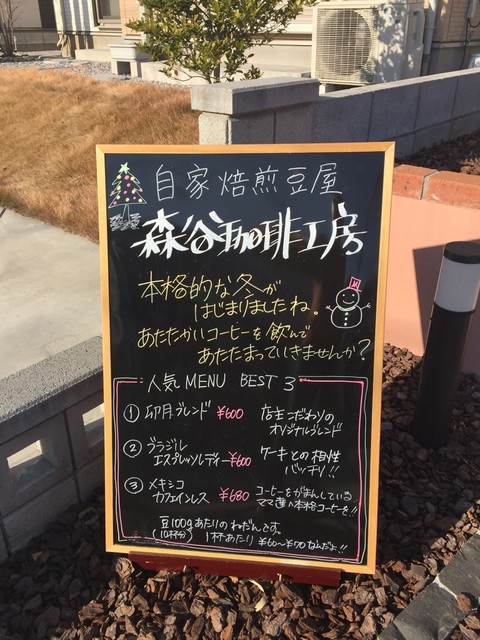 自家焙煎豆屋
森谷珈琲工房
本格的な冬が
はじまりましたね。
あたたかいコーヒーを飲んで
あたたまっていきませんか?
人気MENU BEST 3
① 卯月ブレンド ¥600
店主こだわりの
オリジナルブレンド
② ブラジル
エスプレッソルディー ¥600
ケーキとの相性
バッチリ!!
③ メキシコ
カフェインレス ¥680
コーヒーをがまんしている
ママ達へ本格コーヒーを!!
豆100gあたりのねだんです。
(10杯分) 1杯あたり ¥60〜¥70なんだよ!!